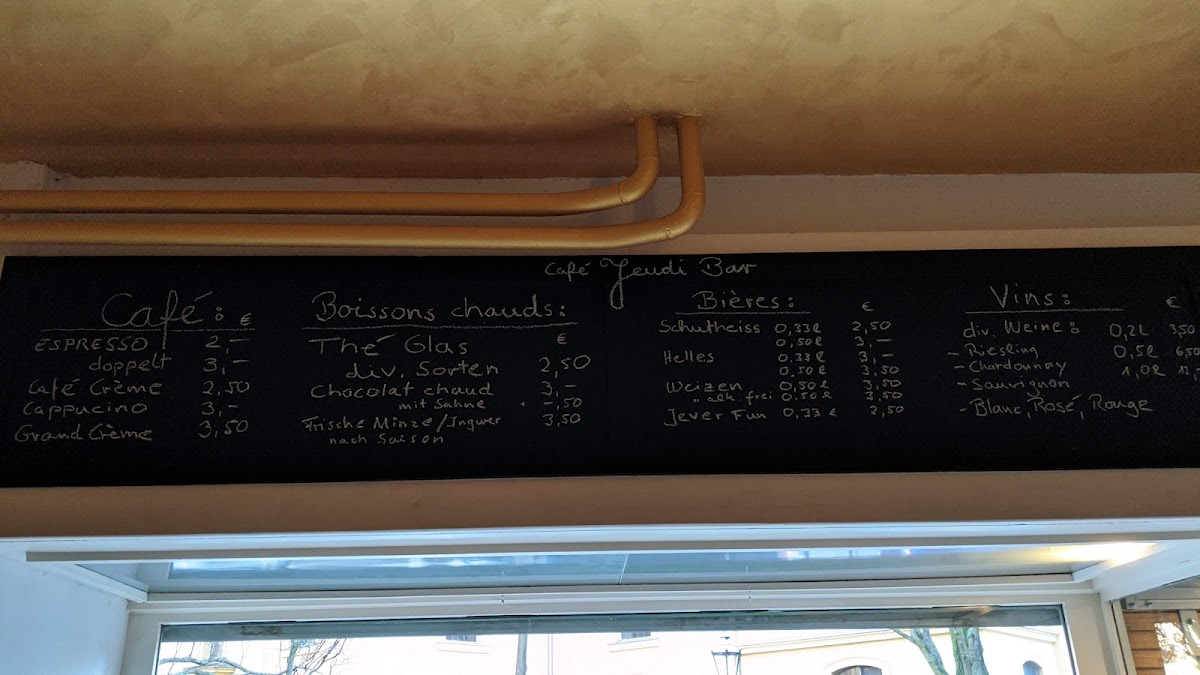 Café Jeudi Bar
Café: €
ESPRESSO 2,-
doppelt 3,-
Café Crème 2,50
Cappucino 3,-
Grand Crème 3,50
Boissons chauds:
€
Thé Glas
div. Sorten 2,50
Chocolat chaud 3,-
mit Sahne + -,50
Frische Minze/Ingwer 3,50
nach Saison
Bières: €
Schultheiss 0,33l 2,50
0,50l 3,-
Helles 0,33l 3,-
0,50l 3,50
Weizen 0,50l 3,50
" alk. frei 0,50l 3,50
Jever Fun 0,33l 2,50
Vins: €
div. Weine: 0,2l 3,50
- Riesling 0,5l 6,50
- Chardounnay 1,0l 12,-
- Sauvignon
- Blanc, Rosé, Rouge